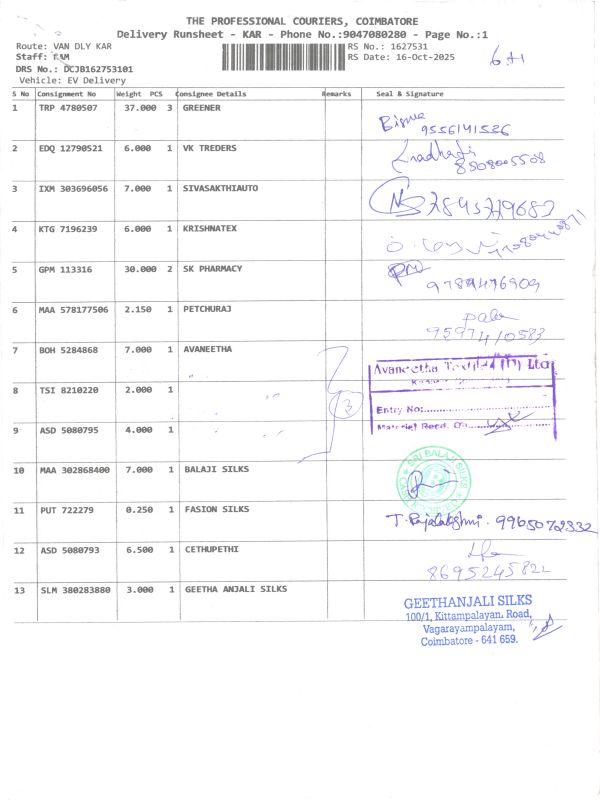 THE PROFESSIONAL COURIERS, COIMBATORE
Delivery Runsheet - KAR - Phone No.:9047080280 - Page No.:1
Route: VAN DLY KAR
RS No.: 1627531
Staff: RAM
RS Date: 16-Oct-2025
DRS No.: DCJB162753101
Vehicle: EV Delivery
S No Consignment No Weight PCS Consignee Details Remarks Seal & Signature
1 TRP 4780507 37.000 3 GREENER
9556141526
2 EDQ 12790521 6.000 1 VK TREDERS
8508005508
3 IXM 303696056 7.000 1 SIVASAKTHIAUTO
4 KTG 7196239 6.000 1 KRISHNATEX
5 GPM 113316 30.000 2 SK PHARMACY
9789476909
6 MAA 578177506 2.150 1 PETCHURAJ
9597410583
7 BOH 5284868 7.000 1 AVANEETHA
Avaneetha Textiles (P) Ltd
8 TSI 8210220 2.000 1
3
Entry No:
Material Recd. On
9 ASD 5080795 4.000 1
10 MAA 302868400 7.000 1 BALAJI SILKS
SRI BALAJI SILKS
11 PUT 722279 0.250 1 FASION SILKS
T. Rajalakshmi. 9965072332
12 ASD 5080793 6.500 1 CETHUPETHI
8695245822
13 SLM 380283880 3.000 1 GEETHA ANJALI SILKS
GEETHANJALI SILKS
100/1, Kittampalayan, Road,
Vagarayampalayam,
Coimbatore - 641 659.